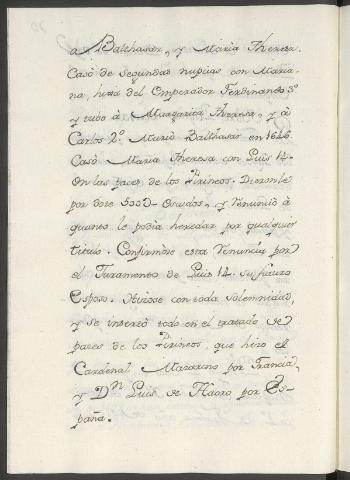 a Balthasar, y Maria Theresa.
Casò de segundas nupcias con Maria-
na, hixa del Emperador Ferdinando 3º
y tubo à Margarita Theresa, y à
Carlos 2º. Muriò Balthasar en 1646.
Casò Maria Theresa con Luis 14.
en las paces de los Pirineos. Dieronle
por dote 500D escudos, y renunciò à
quanto le podia heredar por qualquier
titulo. Confirmòse esta renuncia por
el Juramento de Luis 14. su futuro
Esposo. Hizose con toda solemnidad,
y se insertò todo en el tratado de
paces de los Pirineos, que hizo el
Cardenal Mazarino por Francia,
y Dn Luis de Haro por Es-
paña.